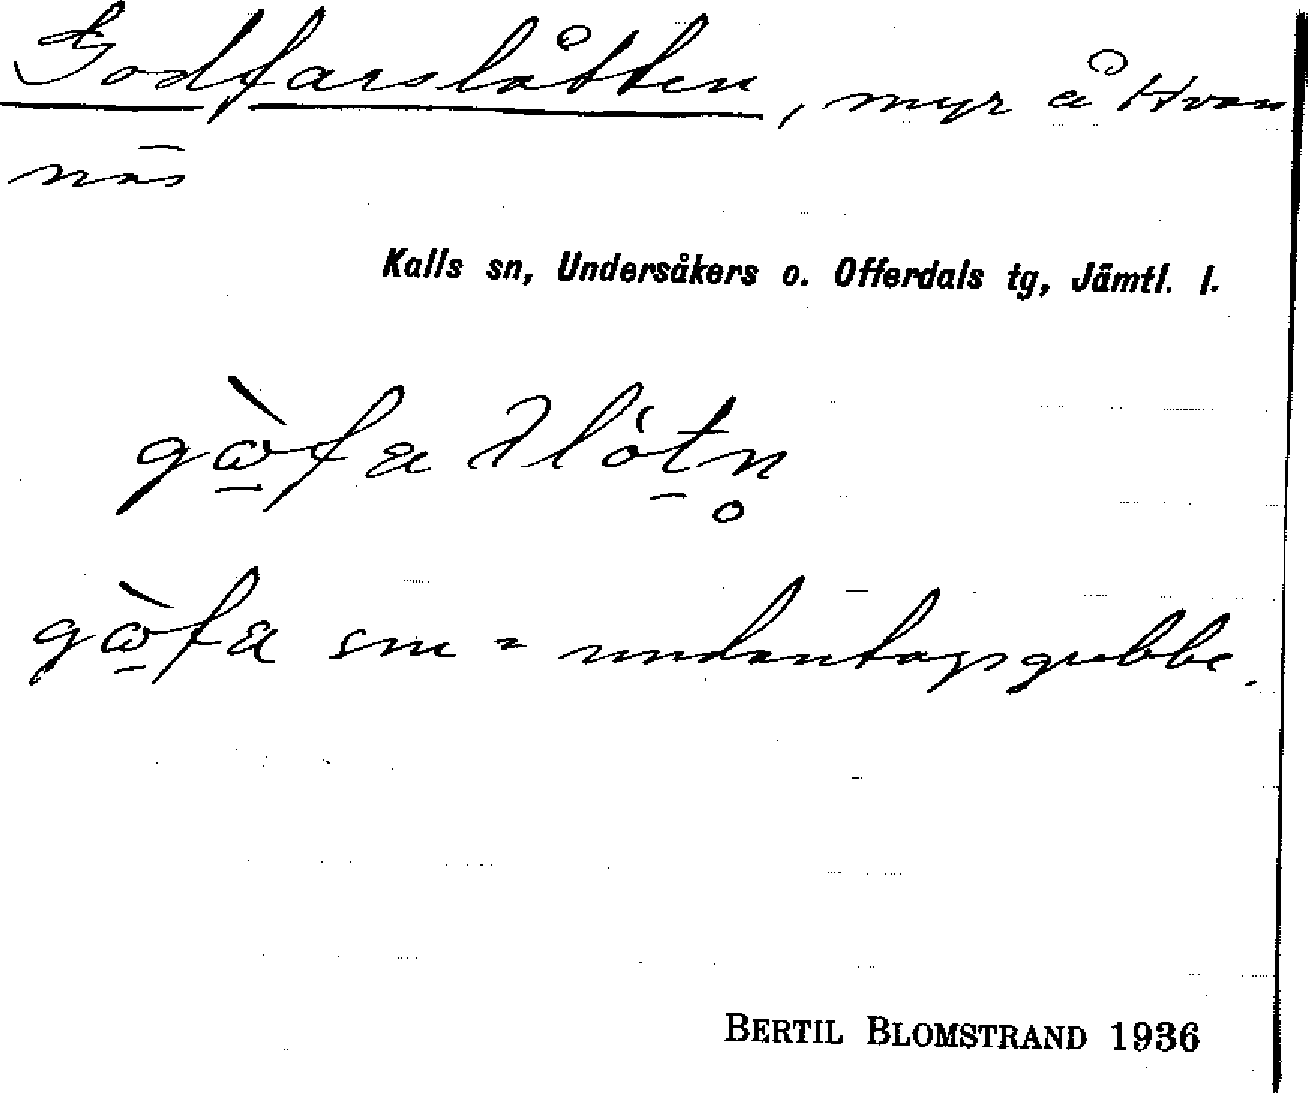 Godfarslåtten, myr å Hvan
näs
Kalls sn, Undersåkers o. Offerdals tg, Jämtl. l.
sm = undantagsgubbe.
BERTIL BLOMSTRAND 1936